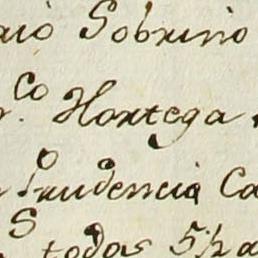 aio Sobrino
r.co Hortega
Prudencia Ca
S todas 5½ a